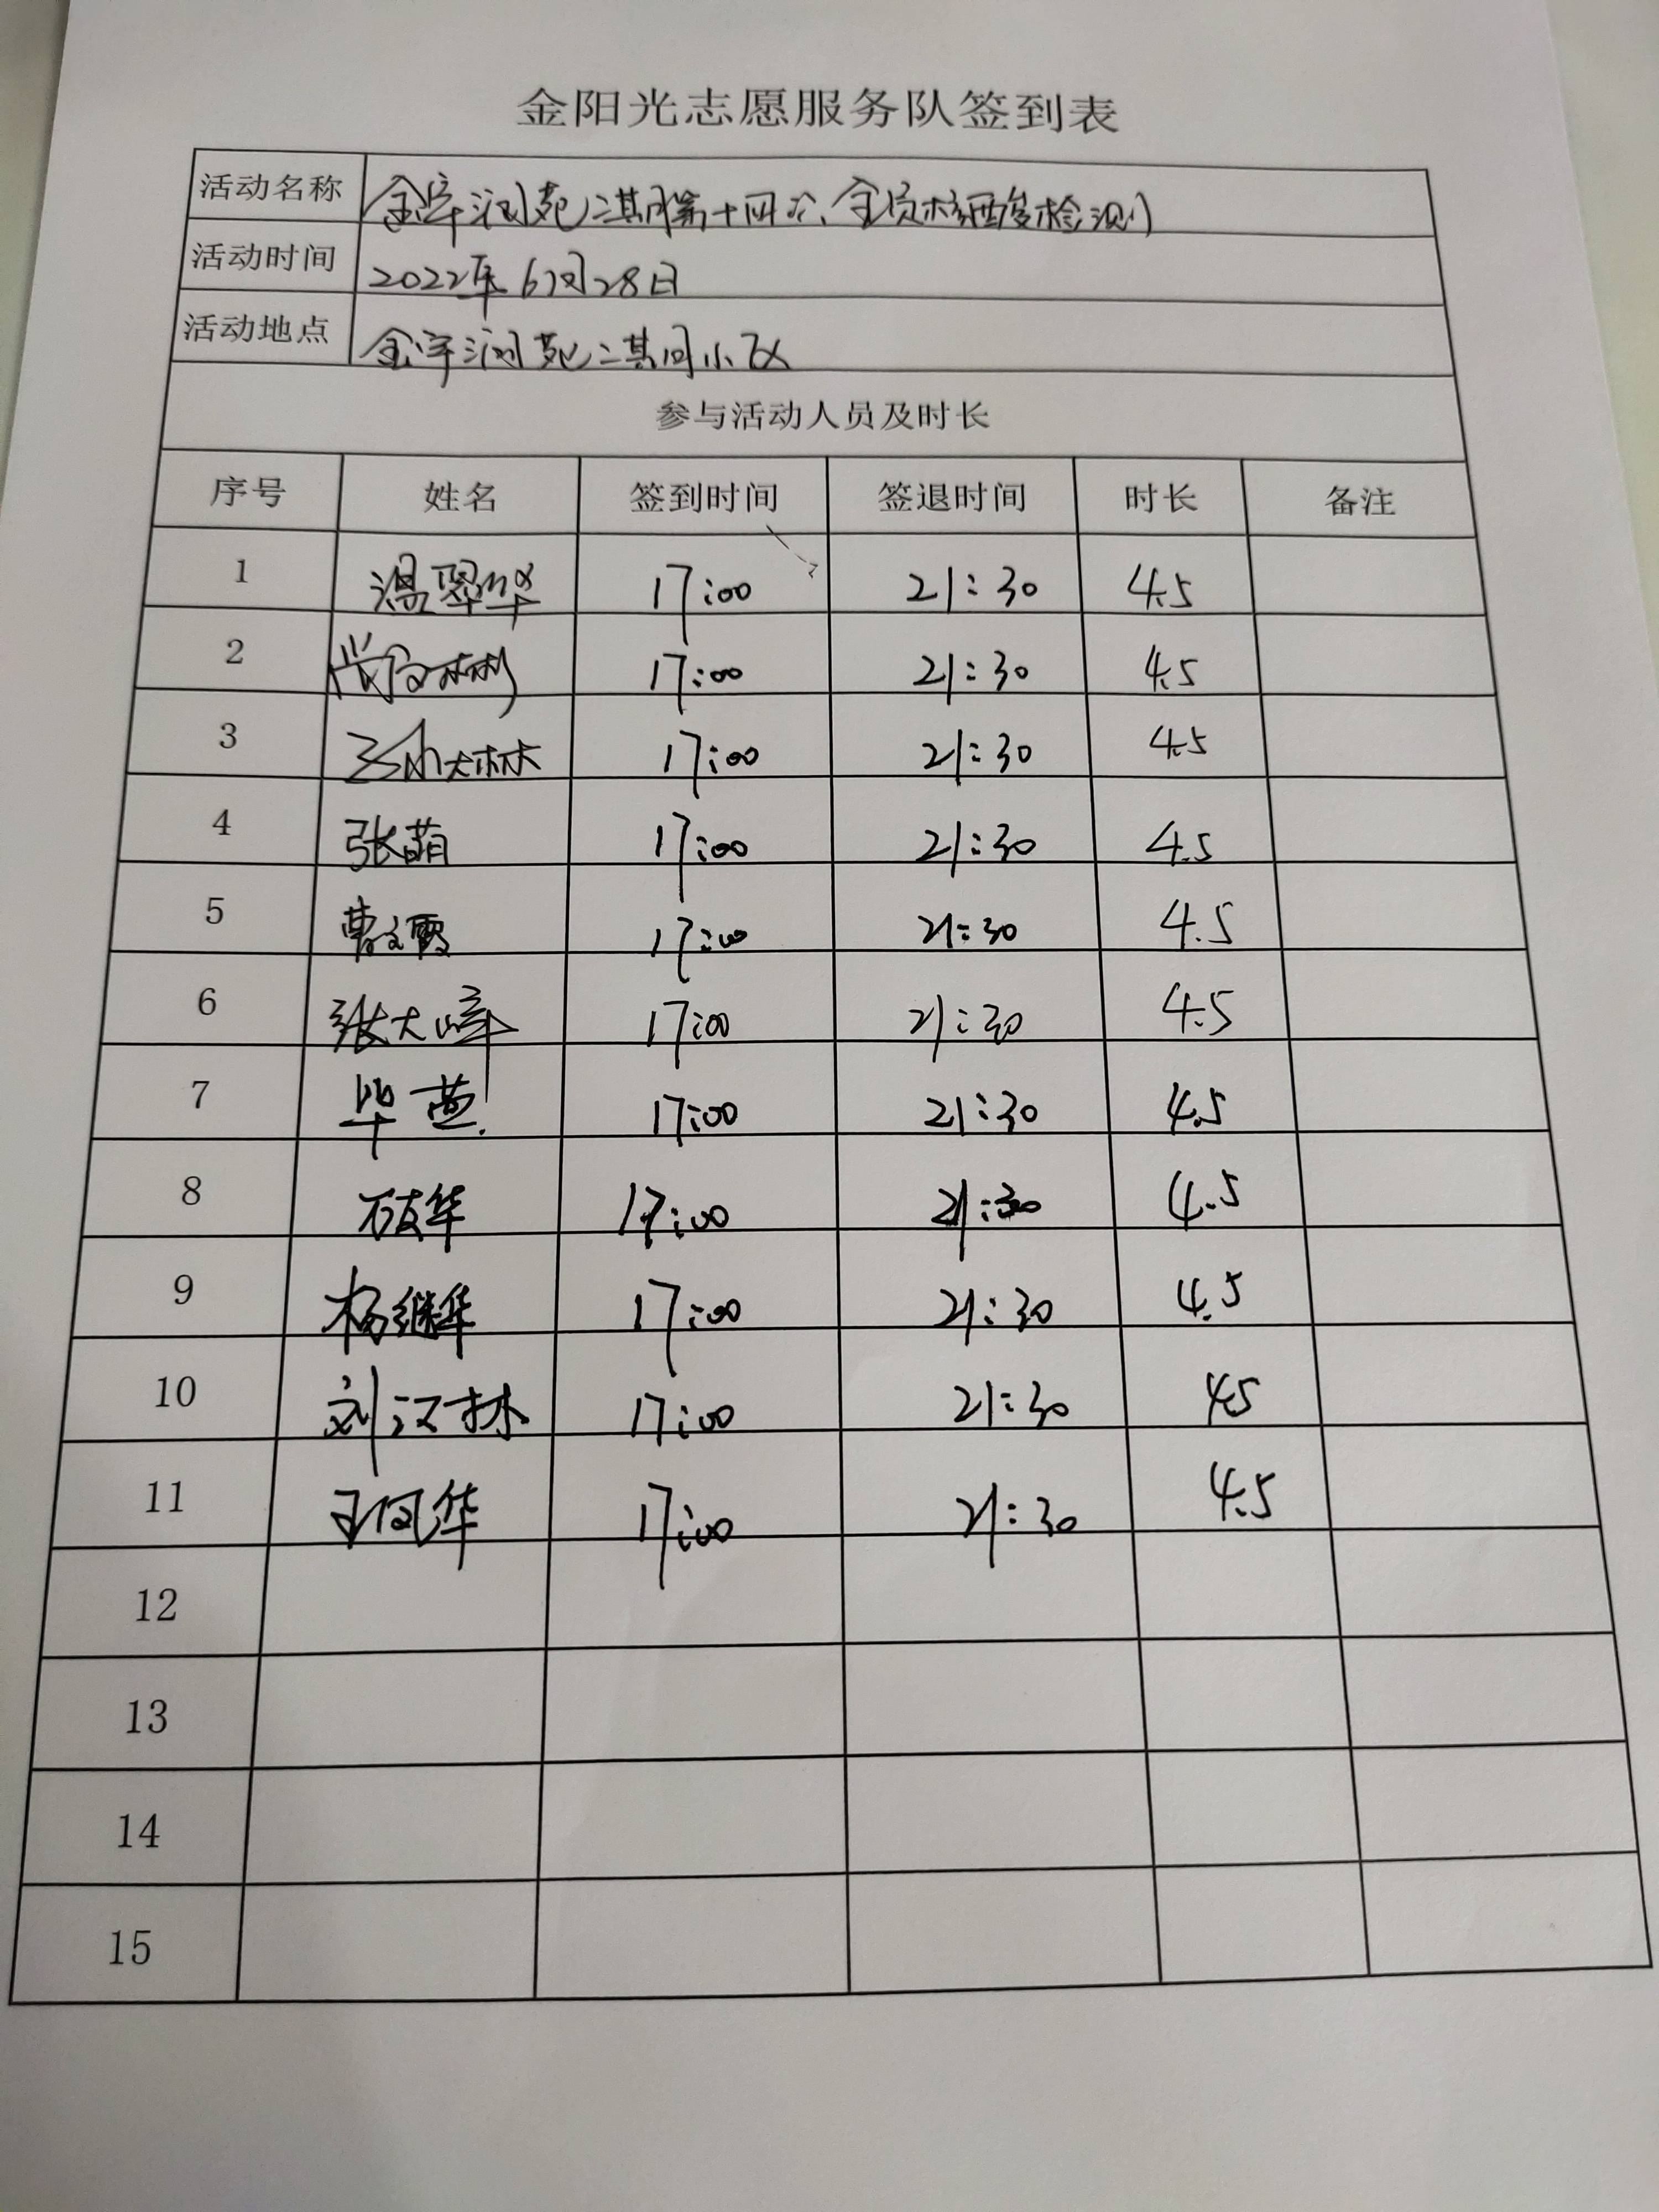 金阳光志愿服务队签到表
活动名称 润苑二期第十四次全员核酸检测
活动时间 2022年6月28日
活动地点 润苑二期小区
参与活动人员及时长
序号 姓名 签到时间 签退时间 时长 备注
1 温翠华 17:00 21:30 4.5
2 17:00 21:30 4.5
3 17:00 21:30 4.5
4 张萌 17:00 21:30 4.5
5 曹文霞 17:00 21:30 4.5
6 张大峰 17:00 21:30 4.5
7 毕燕 17:00 21:30 4.5
8 石友华 17:00 21:30 4.5
9 杨继华 17:00 21:30 4.5
10 刘汉林 17:00 21:30 4.5
11 王凤华 17:00 21:30 4.5
12
13
14
15